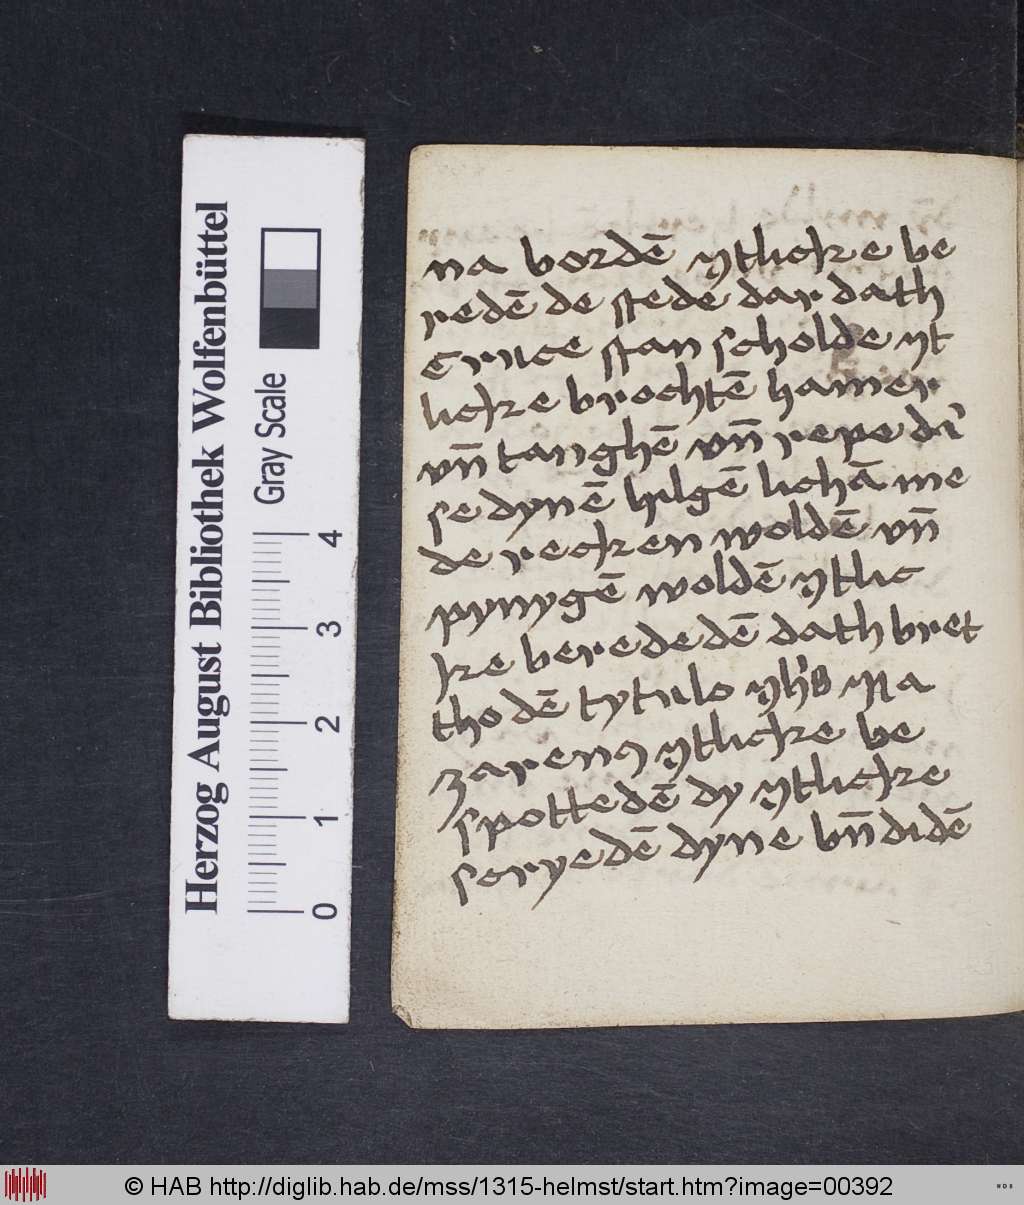 Herzog August Bibliothek Wolfenbüttel
Gray Scale
0 1 2 3 4
na bordē ytlicke be
redē de stede dar dath
cruce stan scholde yt
licke brochtē hamer
vn̄ tanghē vn̄ repe da'
se dynē hilgē lichā me
de recken woldē vn̄
pynygē woldē ytlic
ke berededē dath bret
tho dē tytulo yh's Na
zarenꝯ ytlicke be
spottedē dy ytlicke
scryedē dyne bn̄didē
© HAB http://diglib.hab.de/mss/1315-helmst/start.htm?image=00392